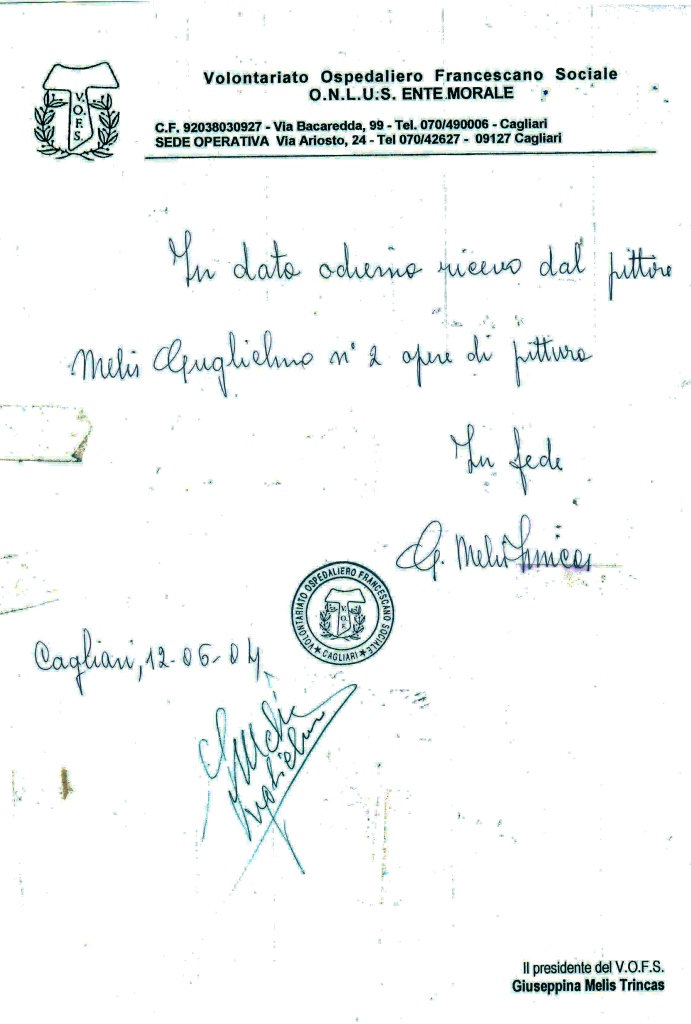 V.
O.
F.
S.
Volontariato Ospedaliero Francescano Sociale
O.N.L.U.S. ENTE MORALE
C.F. 92038030927 - Via Bacaredda, 99 - Tel. 070/490006 - Cagliari
SEDE OPERATIVA Via Ariosto, 24 - Tel 070/42627 - 09127 Cagliari
In data odierna ricevo dal pittore
Melis Guglielmo n° 2 opere di pittura
In fede
G. Melis Trincas
VOLONTARIATO OSPEDALIERO FRANCESCANO SOCIALE
★ CAGLIARI ★
V.
O.
F.
Cagliari, 12-06-04
Melis
Guglielmo
Il presidente del V.O.F.S.
Giuseppina Melis Trincas